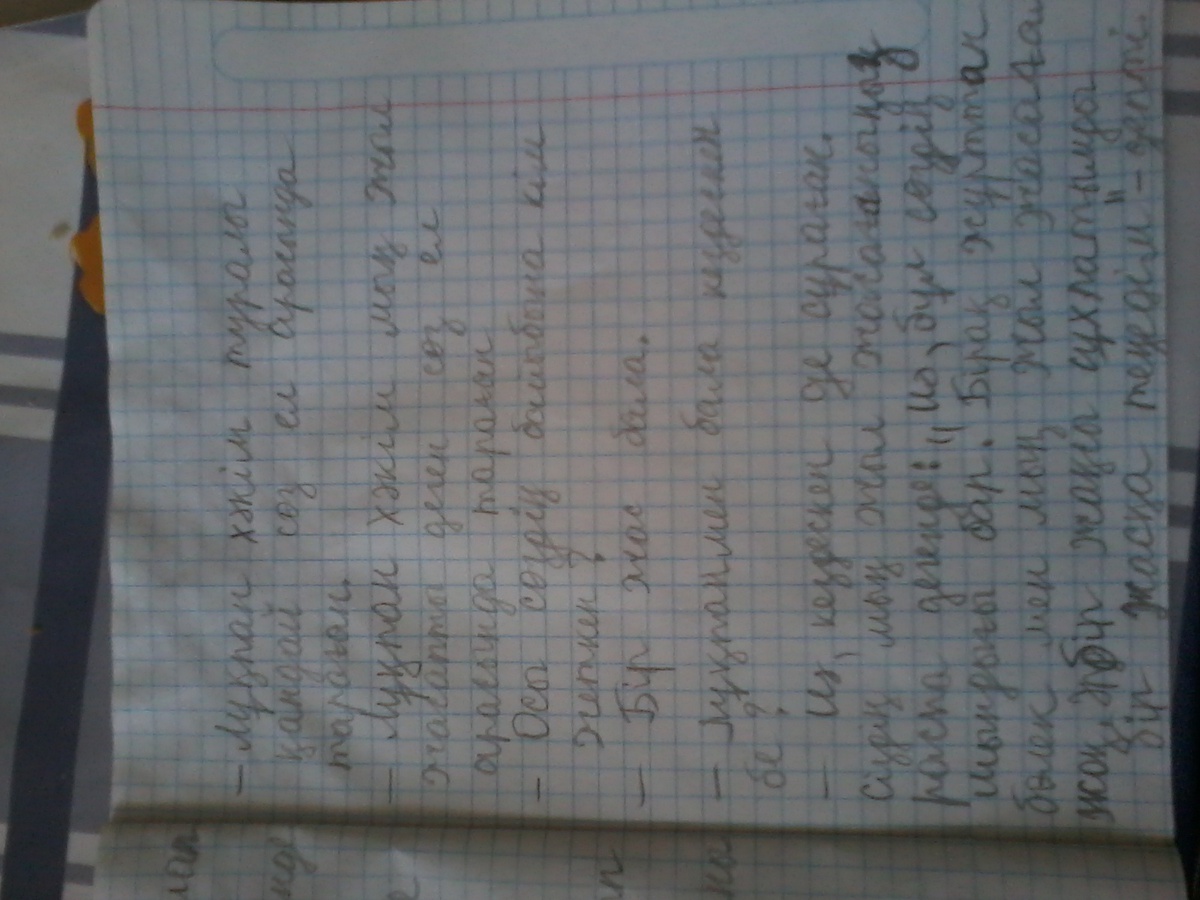 - Лұқпан хәкім туралы
қандай сөз ел арасында
тараған.
- Лұқпан хәкім мың жыл
жасапты деген сөз ел
арасында тараған
- Осы сөздің байыбына кім
жеткен?
- Бір жас бала.
- Лұқпанмен бала кездескен
бе?
- Иә, кездескен де сұраған.
Сіздің мың жыл жасағаныңыз
рас па дегенде: "Иә, бұл сөздің
шындығы бар. Бірақ жұрттан
бөлек мен мың жыл жасағам
жоқ, әр бір жаңа сұхпатымды
бір жасқа теңедім" - депті.
лған
нде
е
ып
на